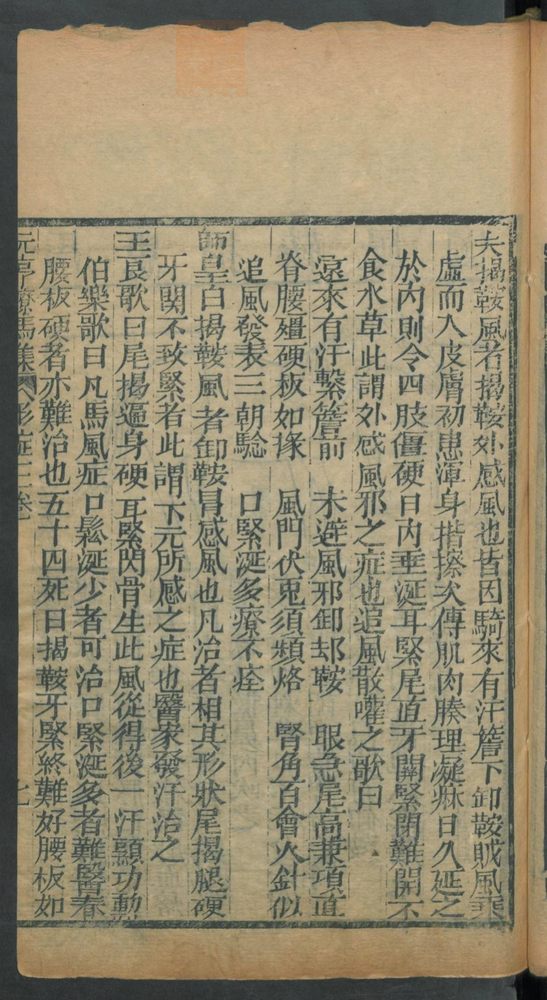 夫揭鞍風者揭鞍外感風也皆因騎來有汗簷下卸鞍賊風乘
虛而入皮膚初患渾身揩擦次傳肌肉腠理凝麻日久延之
於內則令四肢僵硬口內垂涎耳緊尾直牙關緊閉難開不
食水草此謂外感風邪之症也追風散嚾之歌曰
遠來有汗繫簷前 未避風邪卸却鞍 眼急尾高兼項直
脊腰殭硬板如椽 風門伏兎須頻烙 腎角百會火針似
追風發表三朝騐 口緊涎多療不痊
師皇曰揭鞍風者卸鞍冐感風也凡治者相其形狀尾揭腿硬
牙関不致緊者此謂下元所感之症也醫家發汗治之
王良歌曰尾揭逼身硬耳緊閃骨生此風從得後一汗顯功勳
伯樂歌曰凡馬風症口鬆涎少者可治口緊涎多者難醫春
腰板硬者亦難治也五十四死曰揭鞍牙緊終難好腰板如
元亨療馬集 形症三卷 七